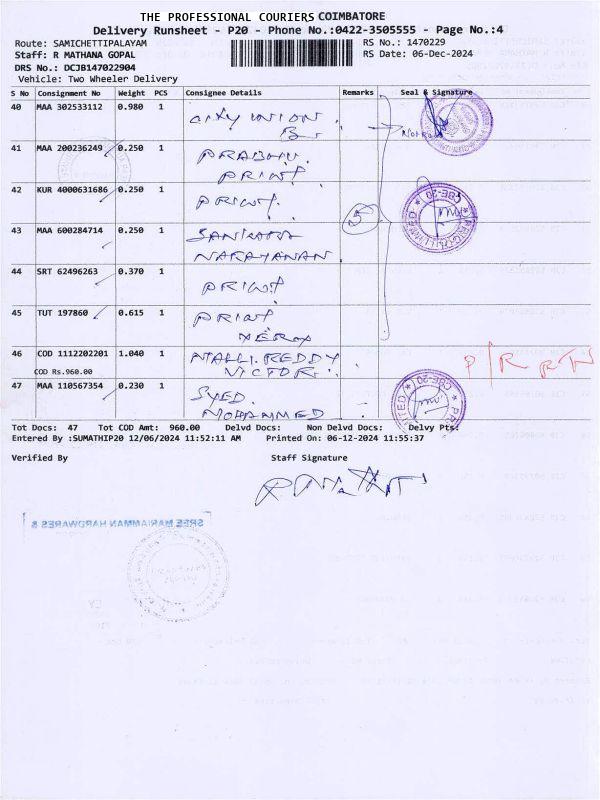 THE PROFESSIONAL COURIERS COIMBATORE
Delivery Runsheet - P20 - Phone No.:0422-3505555 - Page No.:4
Route: SAMICHETTIPALAYAM
RS No.: 1470229
Staff: R MATHANA GOPAL
RS Date: 06-Dec-2024
DRS No.: DCJB147022904
Vehicle: Two Wheeler Delivery
S No Consignment No Weight PCS Consignee Details Remarks Seal & Signature
40 MAA 302533112 0.980 1 CITY UNION
41 MAA 200236249 0.250 1 PRABHU.
PRINT
42 KUR 4000631686 0.250 1 PRINT.
5
43 MAA 600284714 0.250 1 SANKARA
NARAYANAN.
44 SRT 62496263 0.370 1 PRINT
45 TUT 197860 0.615 1 PRINT
XEROX
46 COD 1112202201 1.040 1 NALLI. REDDY
COD Rs.960.00 VICTOR.
P/R RTN
47 MAA 110567354 0.230 1 SYED.
MOHAMMED
Tot Docs: 47 Tot COD Amt: 960.00 Delvd Docs: Non Delvd Docs: Delvy Pts:
Entered By :SUMATHIP20 12/06/2024 11:52:11 AM Printed On: 06-12-2024 11:55:37
Verified By Staff Signature
SREE MARIAMMAN HARDWARES &